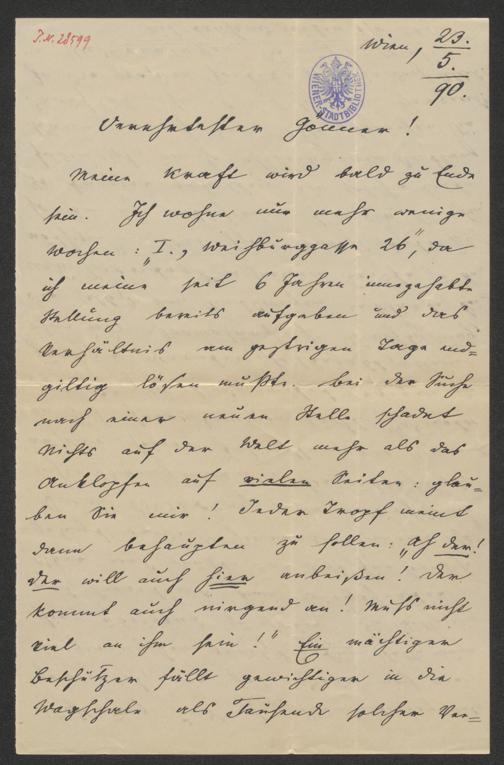 J.N. 28599
Wien, 23.
5.
90.
WIENER STADTBIBLIOTHEK
Verehrtester Gönner!
Meine Kraft wird bald zu Ende
sein. Ich wohne nur mehr wenige
Wochen: "I., Weihburggasse 26", da
ich meine seit 6 Jahren innegehabte
Stellung bereits aufgeben und das
Verhältnis am gestrigen Tage end=
giltig lösen mußte. Bei der Suche
nach einer neuen Stelle schadet
Nichts auf der Welt mehr als das
Anklopfen auf vielen Seiten: glau=
ben Sie mir! Jeder Tropf meint
dann behaupten zu sollen: „Ah der!
der will auch hier anbeißen! Der
kommt auch nirgend an! Muß nicht
viel an ihm sein!" Ein mächtiger
Beschützer fällt gewichtiger in die
Wagschale als Tausende solcher Ver=